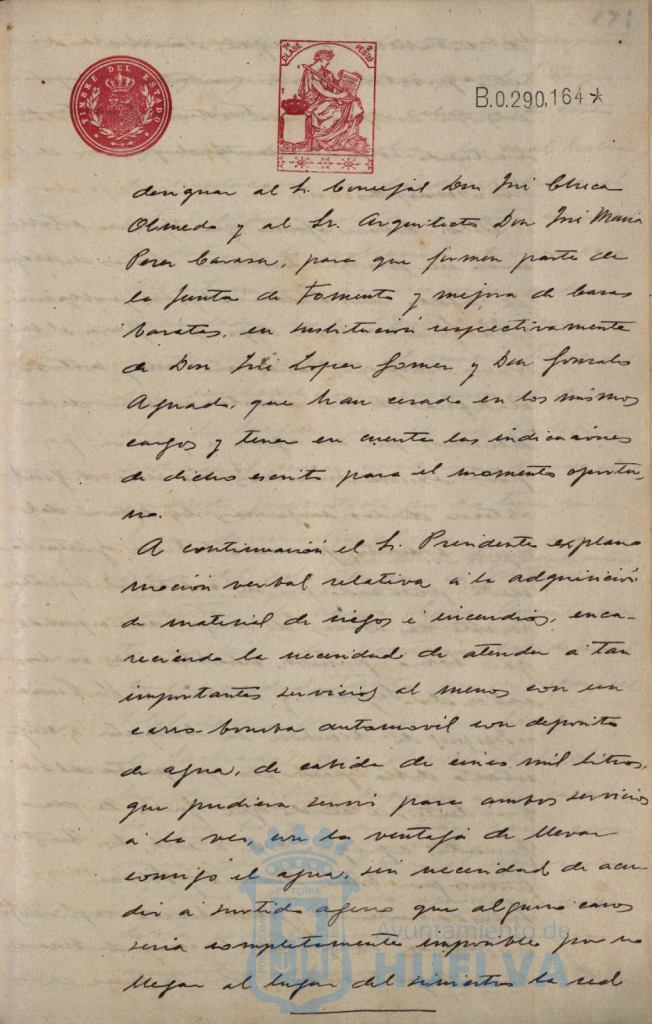 TIMBRE DEL ESTADO
7ª CLASE 2 PESETAS
B.0.290,164*
designar al Sr. Concejal Don José Checa
Olmedo y al Sr. Arquitecto Don José María
Perez Carasa, para que formen parte de
la Junta de Fomento y mejora de Casas
baratas, en sustitución respectivamente
de Don José Lopez Gomez y Don Gonzalo
Aguado, que han cesado en los mismos
cargos y tener en cuenta las indicaciones
de dicho escrito para el momento oportu-
no.
A continuación el Sr. Presidente explana
moción verbal relativa á la adquisición
de material de riegos é incendios, enca-
reciendo la necesidad de atender á tan
importantes servicios al menos con un
carro-bomba automovil con deposito
de agua, de cabida de cinco mil litros,
que pudiera servir para ambos servicios
á la vez, con la ventaja de llevar
consigo el agua, sin necesidad de acu-
dir á surtido ageno que algunos casos
seria completamente imposible por no
llegar al lugar del siniestro la red
Ayuntamiento de
HUELVA